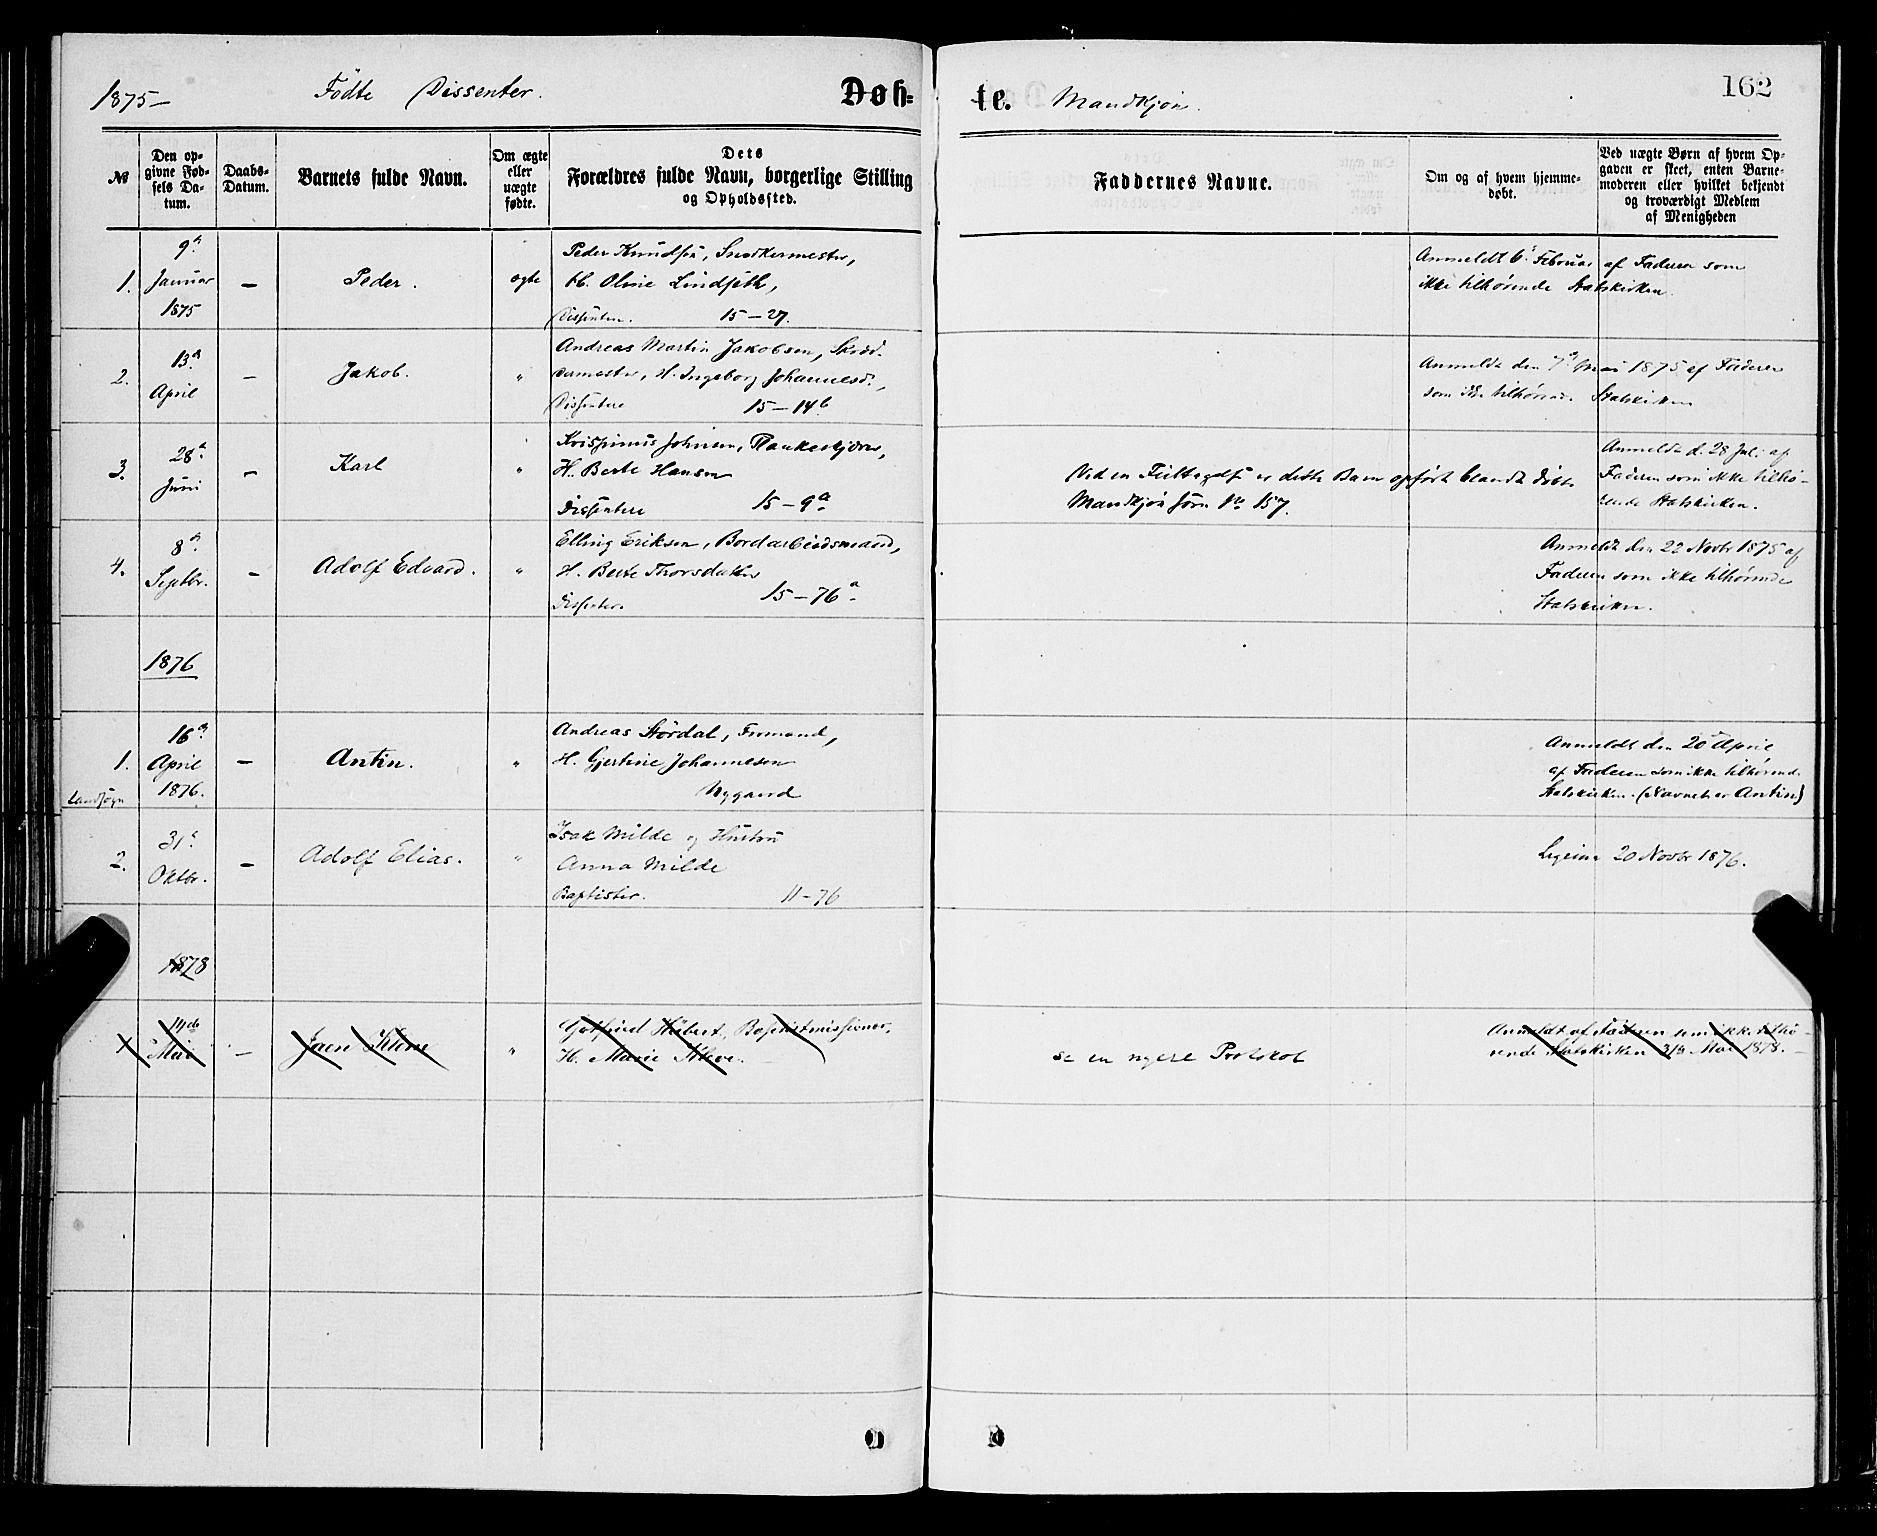 1875 – Födte Dissenter. Døb=
te. Mandkjøn. 162
№
Den op=
givne Fød=
sels Da=
tum.
Daabs=
Datum.
Barnets fulde Navn.
Om ægte
eller
uægte
fødte.
Dets
Forældres fulde Navn, borgerlige Stilling
og Opholdssted.
Faddernes Navne.
Om og af hvem hjemme=
døbt.
Ved uægte Børn af hvem Op=
gaven er skeet, enten Barne=
moderen eller hvilket bekjendt
og troværdigt Medlem
af Menigheden
1.
9de
Januar
1875
–
Peder.
ægte
Peder Knudsen, Snedkermester,
H. Oline Lindseth,
Dissentere. 15 – 27.
Anmeldt 6 Februar af Faderen som
ikke tilhørende Statskirken.
2.
13de
April
–
Jakob.
"
Andreas Martin Jakobsen, Skræd-
dermester, H. Ingeborg Johannesd.,
Dissentere 15 – 14b
Anmeldt den 7de Mai 1875 af Faderen
som ikke tilhørende Statskirken
3.
28de
Juni
–
Karl
"
Krispinus Johnsen,
H. Berte Hansen
Dissentere 15 – 9a
Ved en Feiltagelse er dette Barn opført blandt døbte
Mandkjøn No 157.
Anmeldt d. 28 Juli af
Faderen som ikke tilhø-
rende Statskirken.
4.
8de
Septbr.
–
Adolf Edvard.
"
Elling Eriksen, Bordarbeidsmand,
H. Berte Thorsdatter
Dissentere 15 – 76a
Anmeldt den 22 Novbr 1875 af
Faderen som ikke tilhørende
Statskirken.
1876
1.
Landsogn
16de
April
1876.
–
Antin.
"
Andreas Stördal, Formand,
H. Gjertine Johannesen
Nygaard
Anmeldt den 20 April
af Faderen som ikke tilhørende
Statskirken. (Navnet er Antin)
2.
31te
Oktbr.
–
Adolf Elias.
"
Isak Milde og Hustru
Anna Milde
Baptister. 11 – 76
Ligesaa 20 Novbr 1876.
1878
1
14de
Mai
–
"
Gotfried Hübert, Baptistmissionær,
H. Marie Kleve.
se en nyere Protokol
Anmeldt af Faderen som ikke tilhø-
rende Statskirken 31te Mai 1878. –